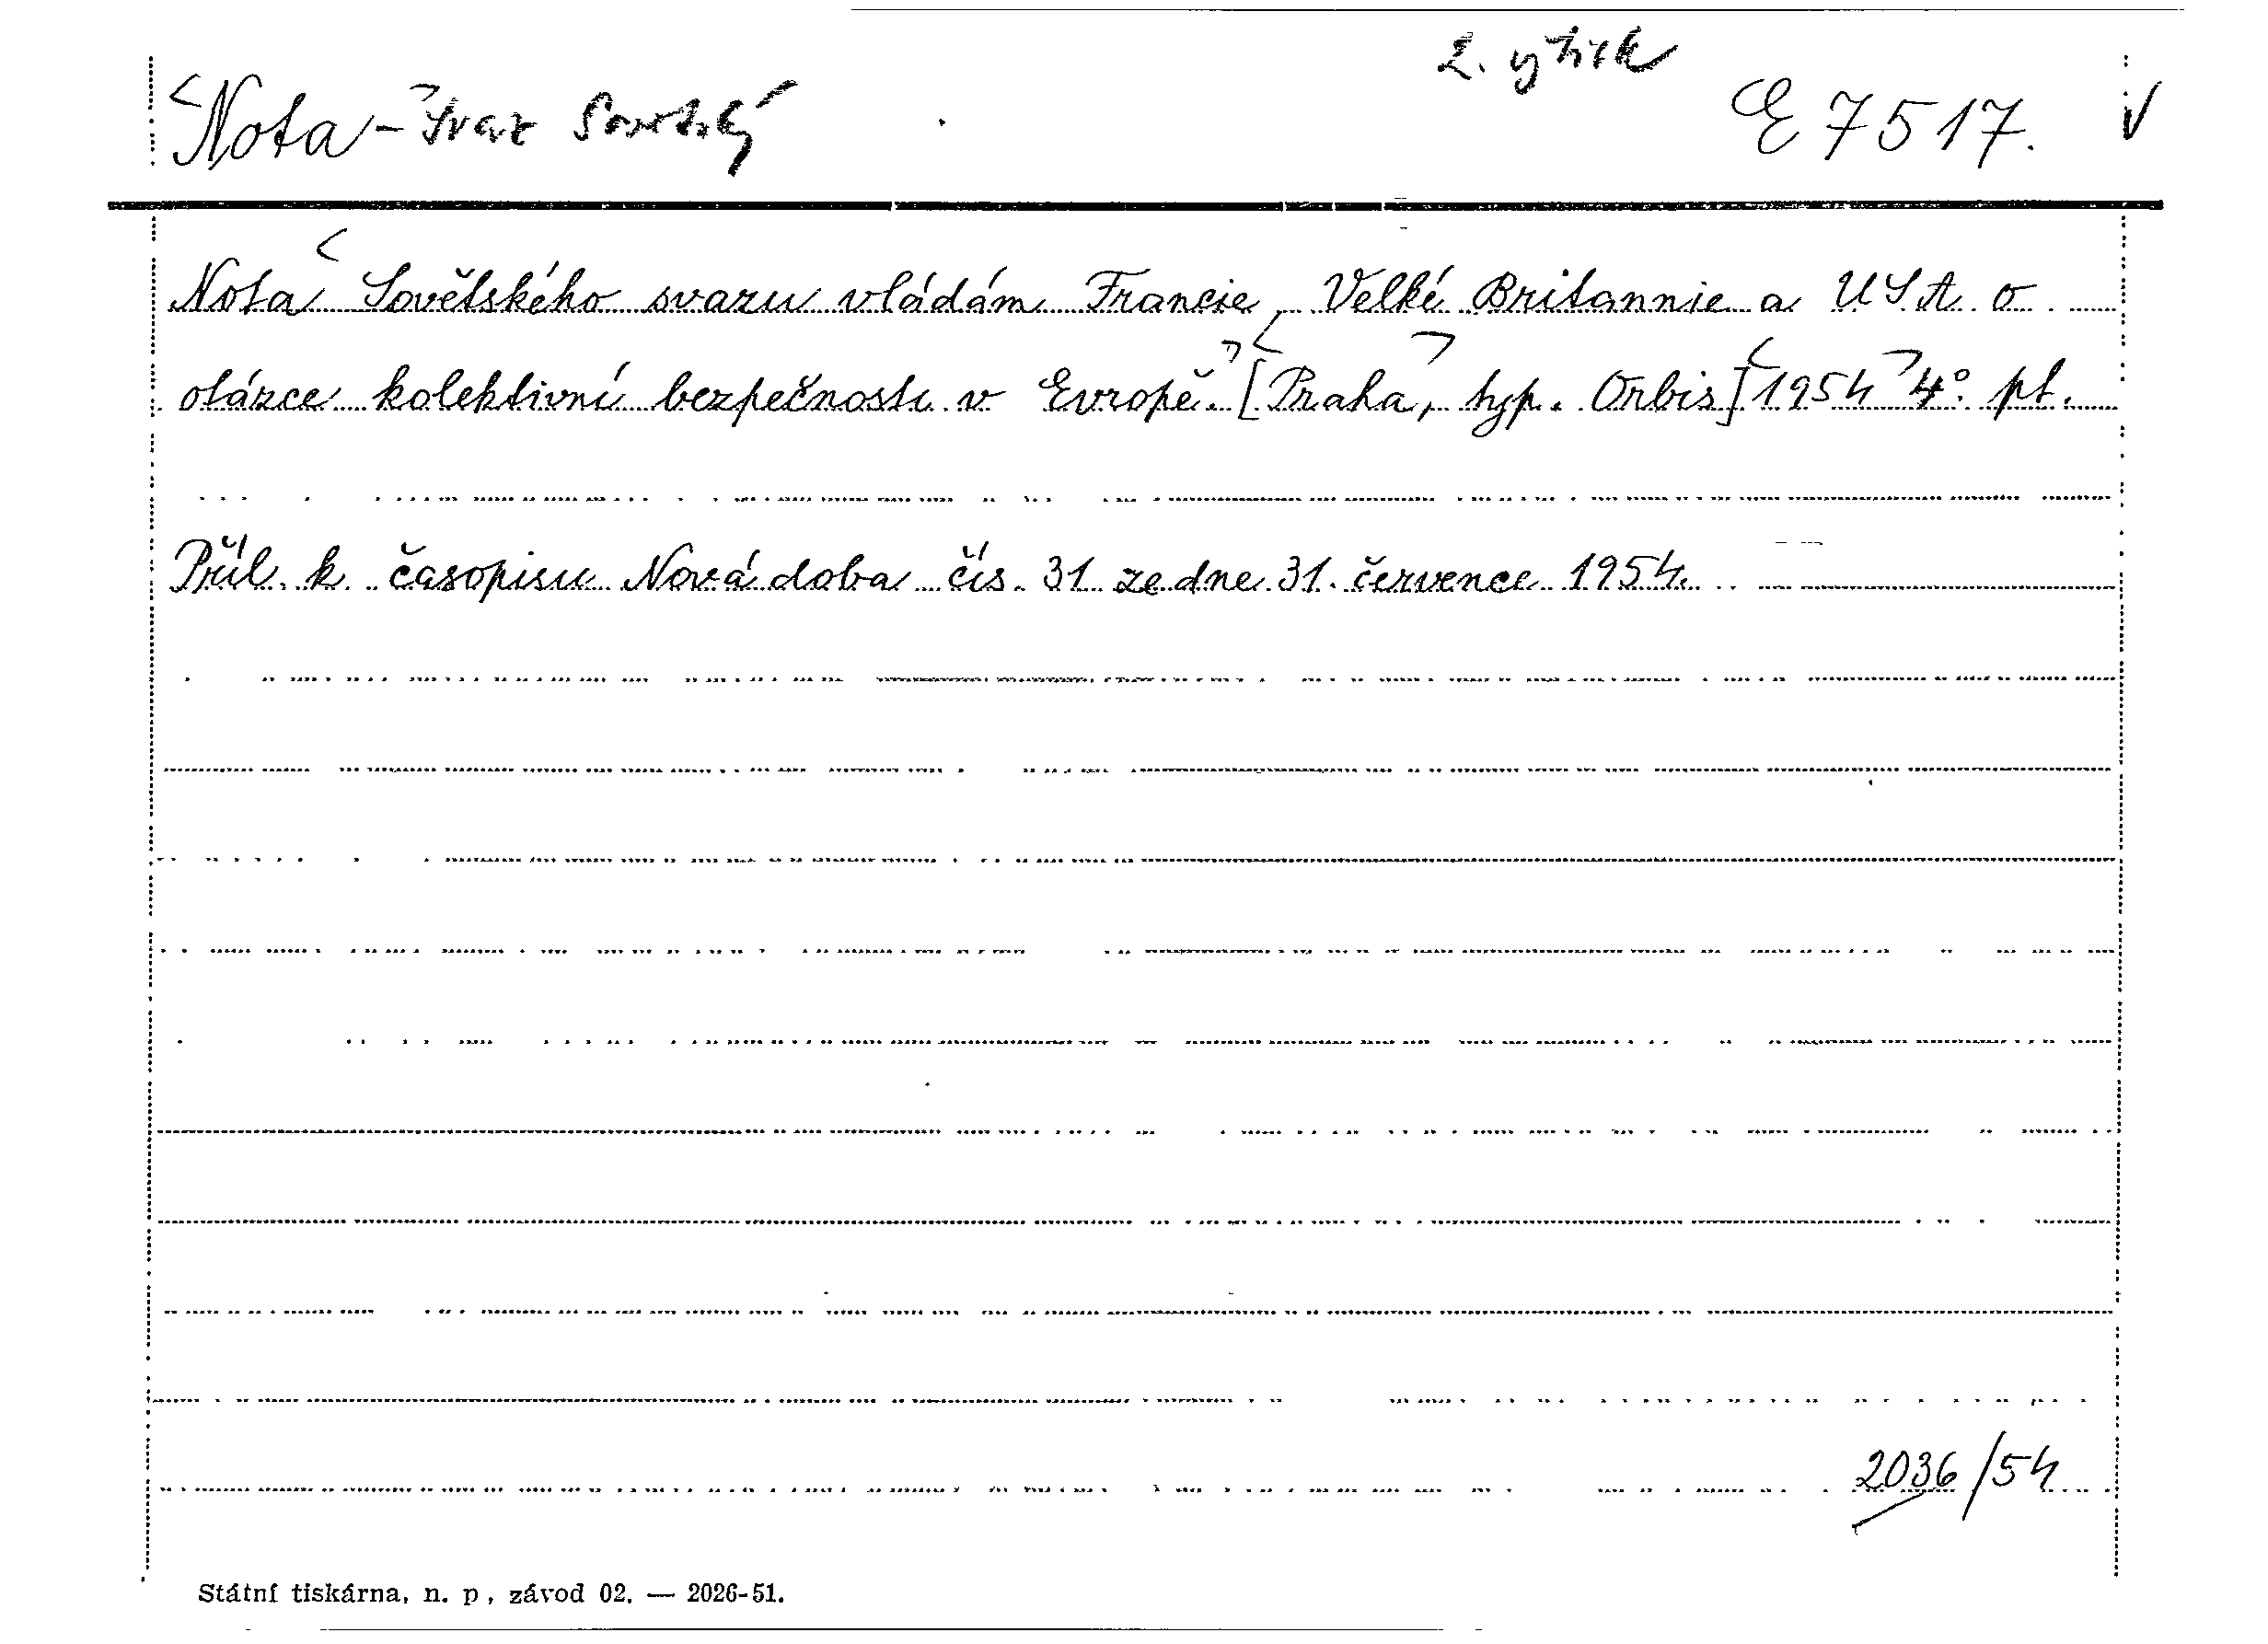 2. výtisk
Nota - Svaz Sovětský E 7517.
Nota Sovětského svazu vládám Francie, Velké Britannie a USA o
otázce kolektivní bezpečnosti v Evropě. [Praha, typ. Orbis] 1954 4°. pt.
Příl. k časopisu Nová doba čís. 31 ze dne 31. července 1954.
2036/54
Státní tiskárna, n. p., závod 02. — 2026-51.